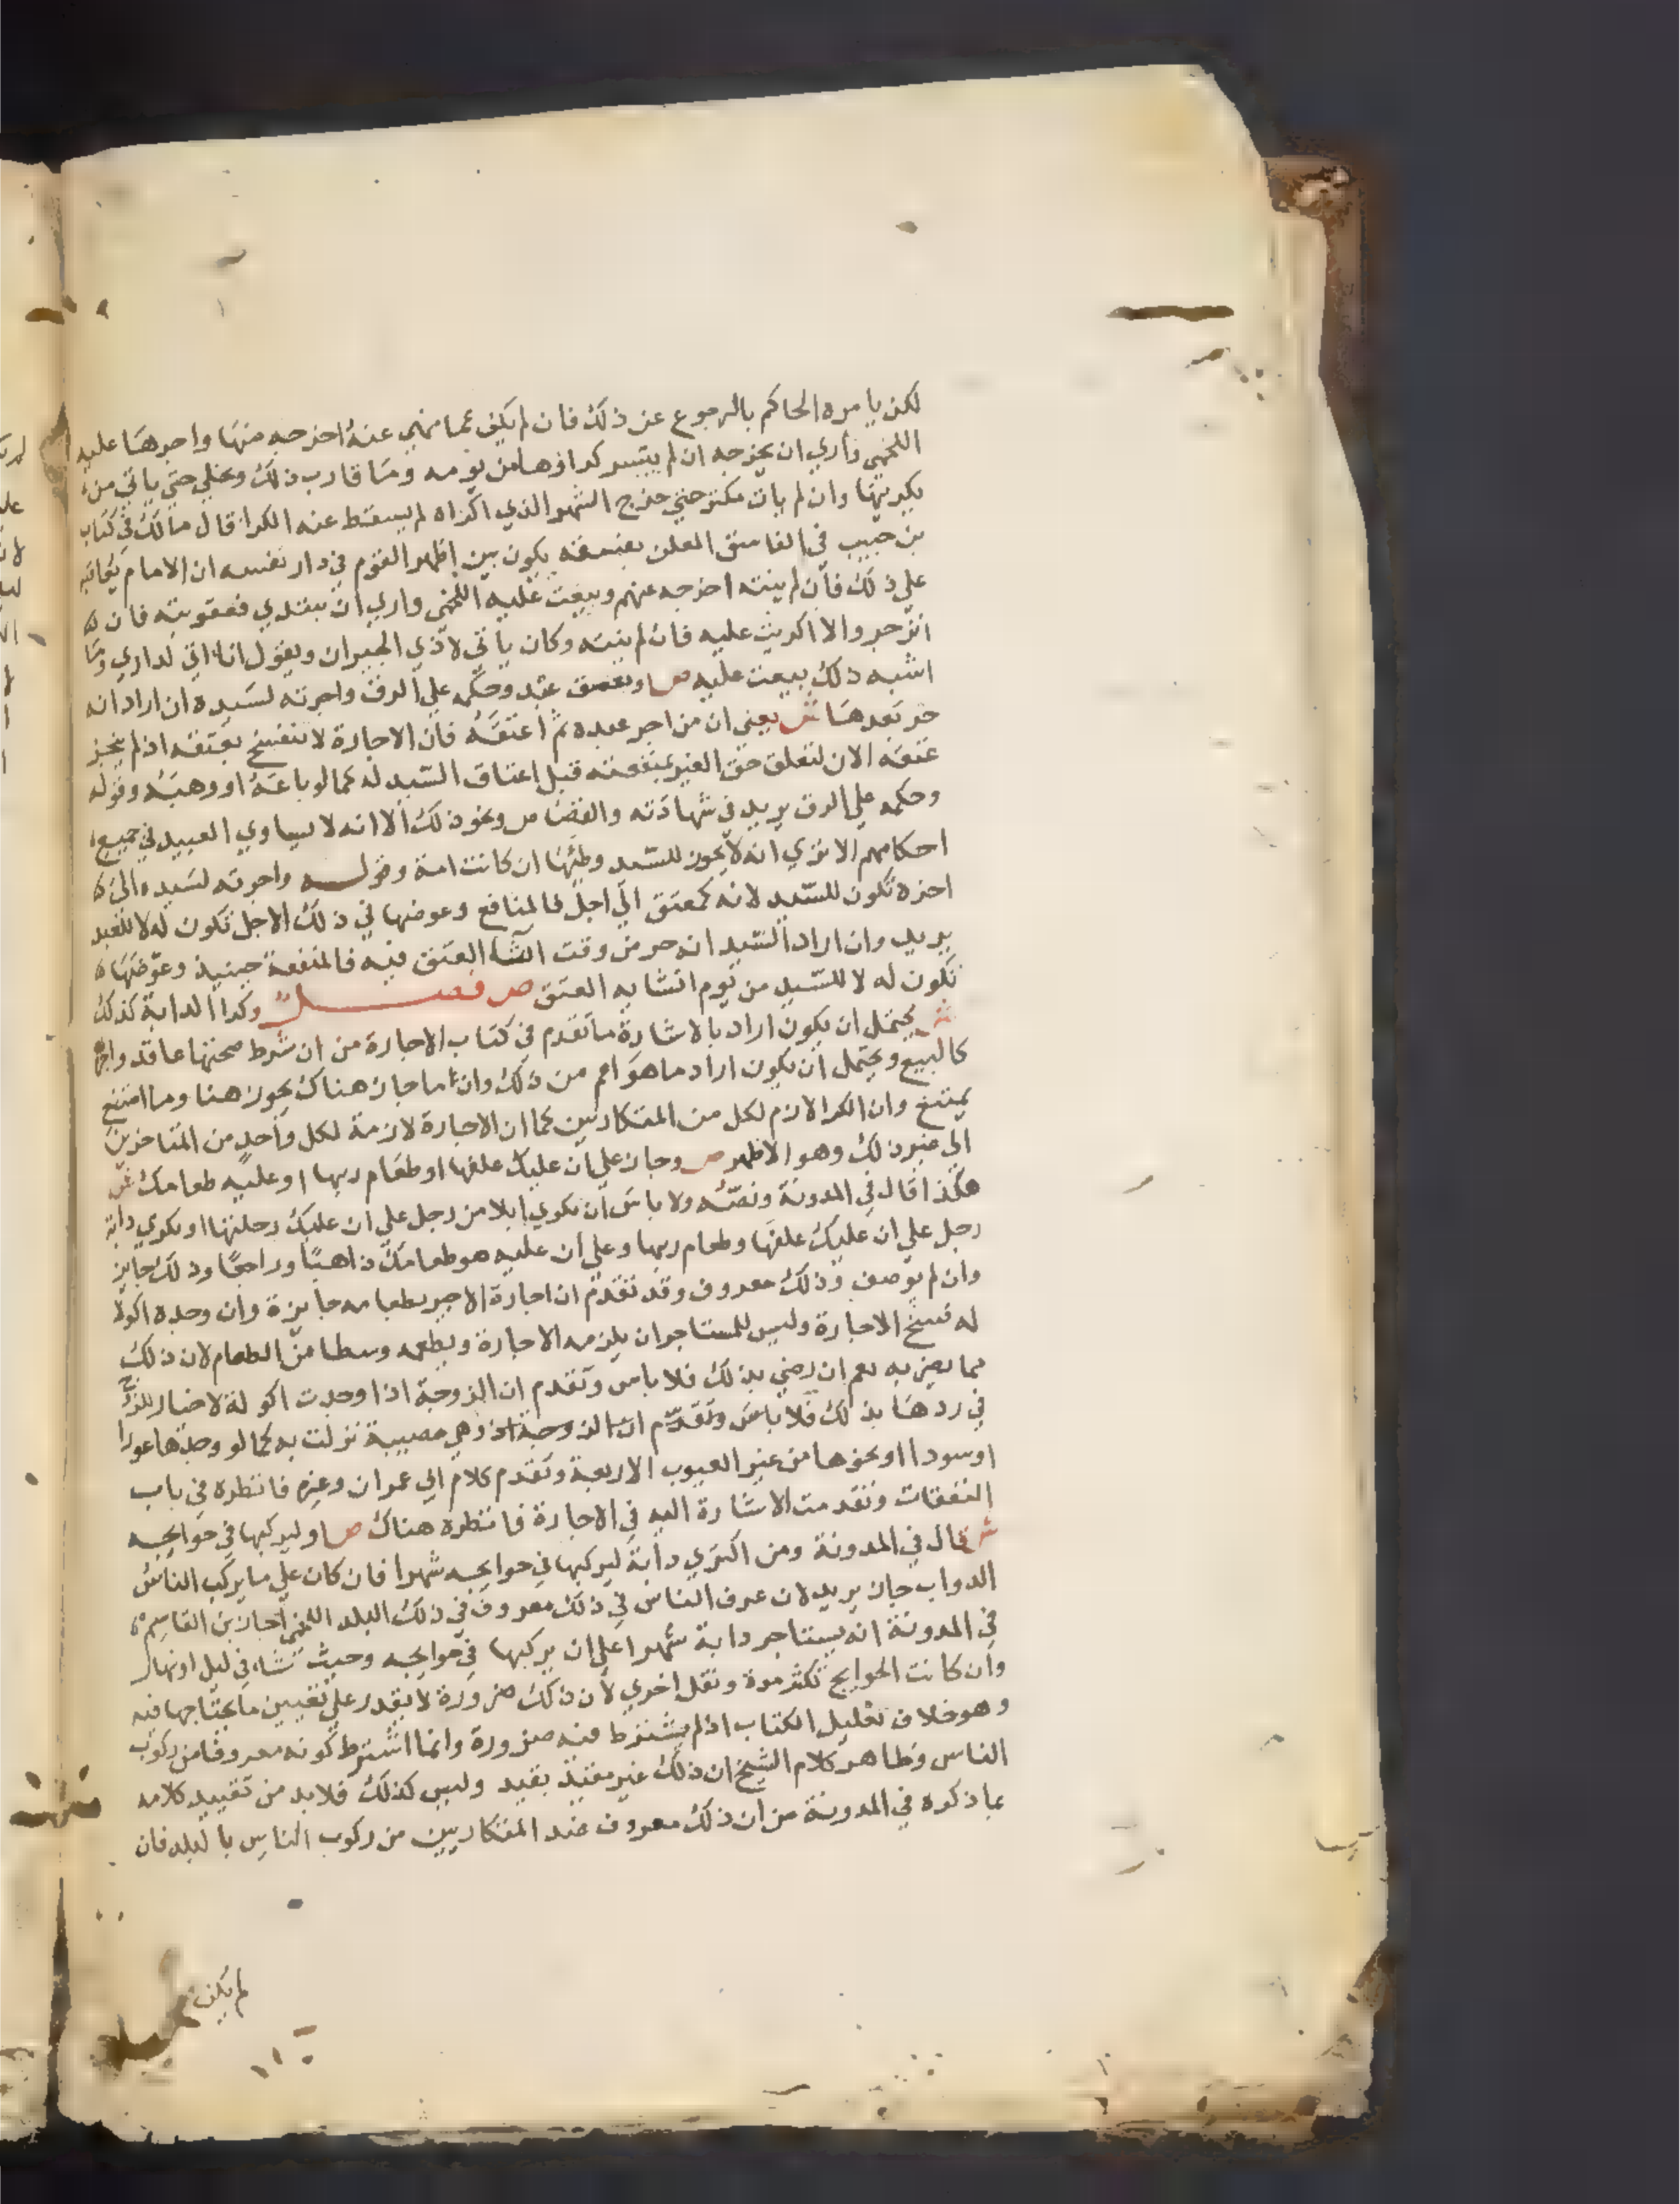 لكن يامره الحاكم بالرجوع عن ذلك فان لم يكف عما نهي عنه اخرجه منها واجرها عليه
اللخمي واري ان يخرجه ان لم يتيسر كراوها من يومه وما قارب ذلك ويخلي حتي ياتي من
يكريها وان لم يات مكتر حتي خرج الشهر الذي اكراه لم يسقط عنه الكرا قال مالك في كتاب
بن حبيب في الفاسق المعلن بفسقه يكون بين اظهر القوم في دار نفسه ان الامام يعاقبه
علي ذلك فان لم ينته اخرجه عنهم وبيعت عليه اللخمي واري ان يبتدي بعقوبته فان
انزجر والا اكريت عليه فان لم ينته وكان ياتي لاذي الجيران ويقول انا اتي لداري وما
اشبه ذلك بيعت عليه ص او بعتق عبد وحكمه علي الرق واجرته لسيده ان اراد انه
حر بعدها ش يعني ان من اجر عبده ثم اعتقه فان الاجارة لا تنفسخ بعتقه اذ لم ينجز
عتقه الان لتعلق حق الغير بمنفعته قبل اعتاق السيد له كما لو باعه او وهبه وقوله
وحكمه علي الرق يريد في شهادته والقصاص ونحو ذلك الا انه لا يساوي العبيد في جميع
احكامهم الا تري انه لا يجوز للسيد وطئها ان كانت امة وقوله واجرته لسيده الي
اخره تكون للسيد لانه كمعتق الي اجل فالمنافع وعوضها في ذلك الاجل تكون له لا للعبد
يريد وان اراد السيد انه حر من وقت انشا العتق فيه فالمنفعة حينيذ وعوضها
تكون له لا للسيد من يوم انشا به العتق ص فصل وكرا الدابة كذلك
ش يحتمل ان يكون اراد بالاشارة ما تقدم في كتاب الاجارة من ان شرط صحتها عاقد واجر
كالبيع ويحتمل ان يكون اراد ما هو اعم من ذلك وان ما جاز هناك يجوز هنا وما امتنع
يمتنع وان الكرا لازم لكل من المتكاريين كما ان الاجارة لازمة لكل واحد من المتاجرين
الي غير ذلك وهو الاظهر ص وجاز علي ان عليك علفها او طعام ربها او عليه طعامك ش
هكذا قال في المدونة ونصه ولا باس ان تكري ابلا من رجل علي ان عليك رحلتها او تكري دابة
رجل علي ان عليك علفها وطعام ربها وعلي ان عليه هو طعامك ذاهبا وراجعا وذلك جايز
وان لم توصف وذلك معروف وقد تقدم ان اجارة الاجير بطعامه جايزة وان وجده اكولا
له فسخ الاجارة وليس للمستاجر ان يلزمه الاجارة ويطعمه وسطا من الطعام لان ذلك
مما يضر به نعم ان رضي بذلك فلا باس وتقدم ان الزوجة اذا وجدت اكولة لا خيار للزوج
في ردها بذلك فلا باس وتقدم ان الزوجة اذ وهي مصيبة نزلت به كما لو وجدها عورا
او سودا او نحوها من غير العيوب الاربعة وتقدم كلام ابي عمران وغيره فانظره في باب
النفقات وتقدمت الاشارة اليه في الاجارة فانظره هناك ص او ليركبها في حوايجه
ش قال في المدونة ومن اكتري دابة ليركبها في حوايجه شهرا فان كان علي ما يركب الناس
الدواب جاز يريد لان عرف الناس في ذلك معروف في ذلك البلد اللخمي اجاز بن القاسم
في المدونة انه يستاجر دابة شهرا علي ان يركبها في حوايجه وحيث شا في ليل او نهار
وان كانت الحوايج تكثر مرة وتقل اخري لان ذلك ضرورة لا يقدر علي تعيين ما يحتاجها فيه
وهو خلاف تعليل الكتاب اذ لم يشترط فيه ضرورة وانما اشترط كونه معروفا من ركوب
الناس وظاهر كلام الشيخ ان ذلك غير مقيد بقيد وليس كذلك فلا بد من تقييد كلامه
بما ذكره في المدونة من ان ذلك معروف عند المتكاريين من ركوب الناس بالبلد فان
لم يكن